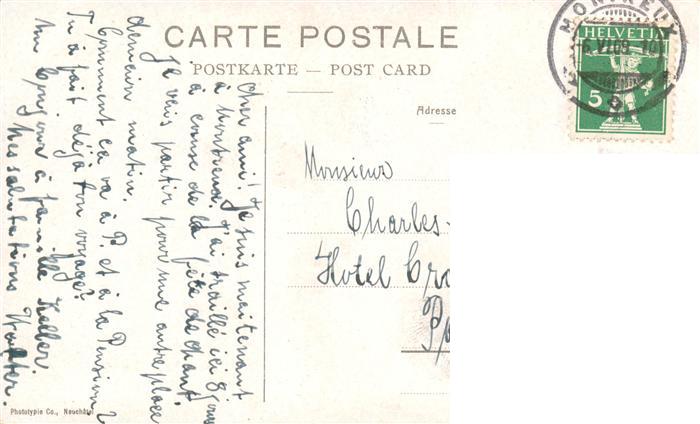 CARTE POSTALE
POSTKARTE — POST CARD
Adresse
MONTREUX
6.VI.08
HELVETIA
5
Monsieur
Charles
Hotel
Cher ami! Je suis maitenant
à Montreux. J'ai travaillé ici 8 jours
à cause de la fête de chant
Je vais partir pour une autre place
demain matin.
Comment ça va à P. et à la Pension?
Tu a fait déjà ton voyage?
Un bonjour à famille Keller.
Mes salutations Walter.
Phototypie Co., Neuchâtel